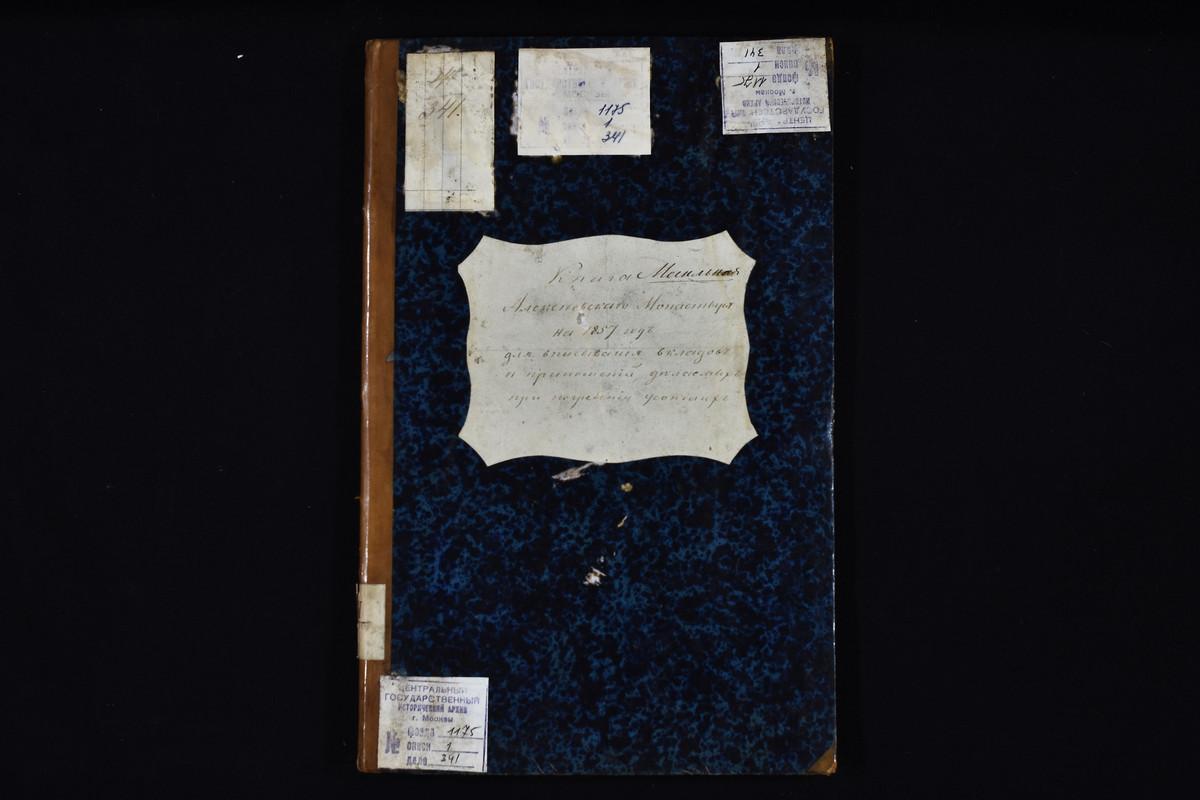 341.
1175
1
341
ЦЕНТР
ГОСУДАРСТВЕН
ИСТОРИЧЕСКИЙ АРХИВ
г. Москвы
№ фонда 1175
описи 1
дела 341
Книга Могильная
Алексеевскаго Монастыря
на 1857 годъ
для вписыванія вкладовъ
и приношеній, делаемыхъ
при погребеніи усопшихъ
ЦЕНТРАЛЬНЫЙ
ГОСУДАРСТВЕННЫЙ
ИСТОРИЧЕСКИЙ АРХИВ
г. Москвы
№ фонда 1175
описи 1
дело 341